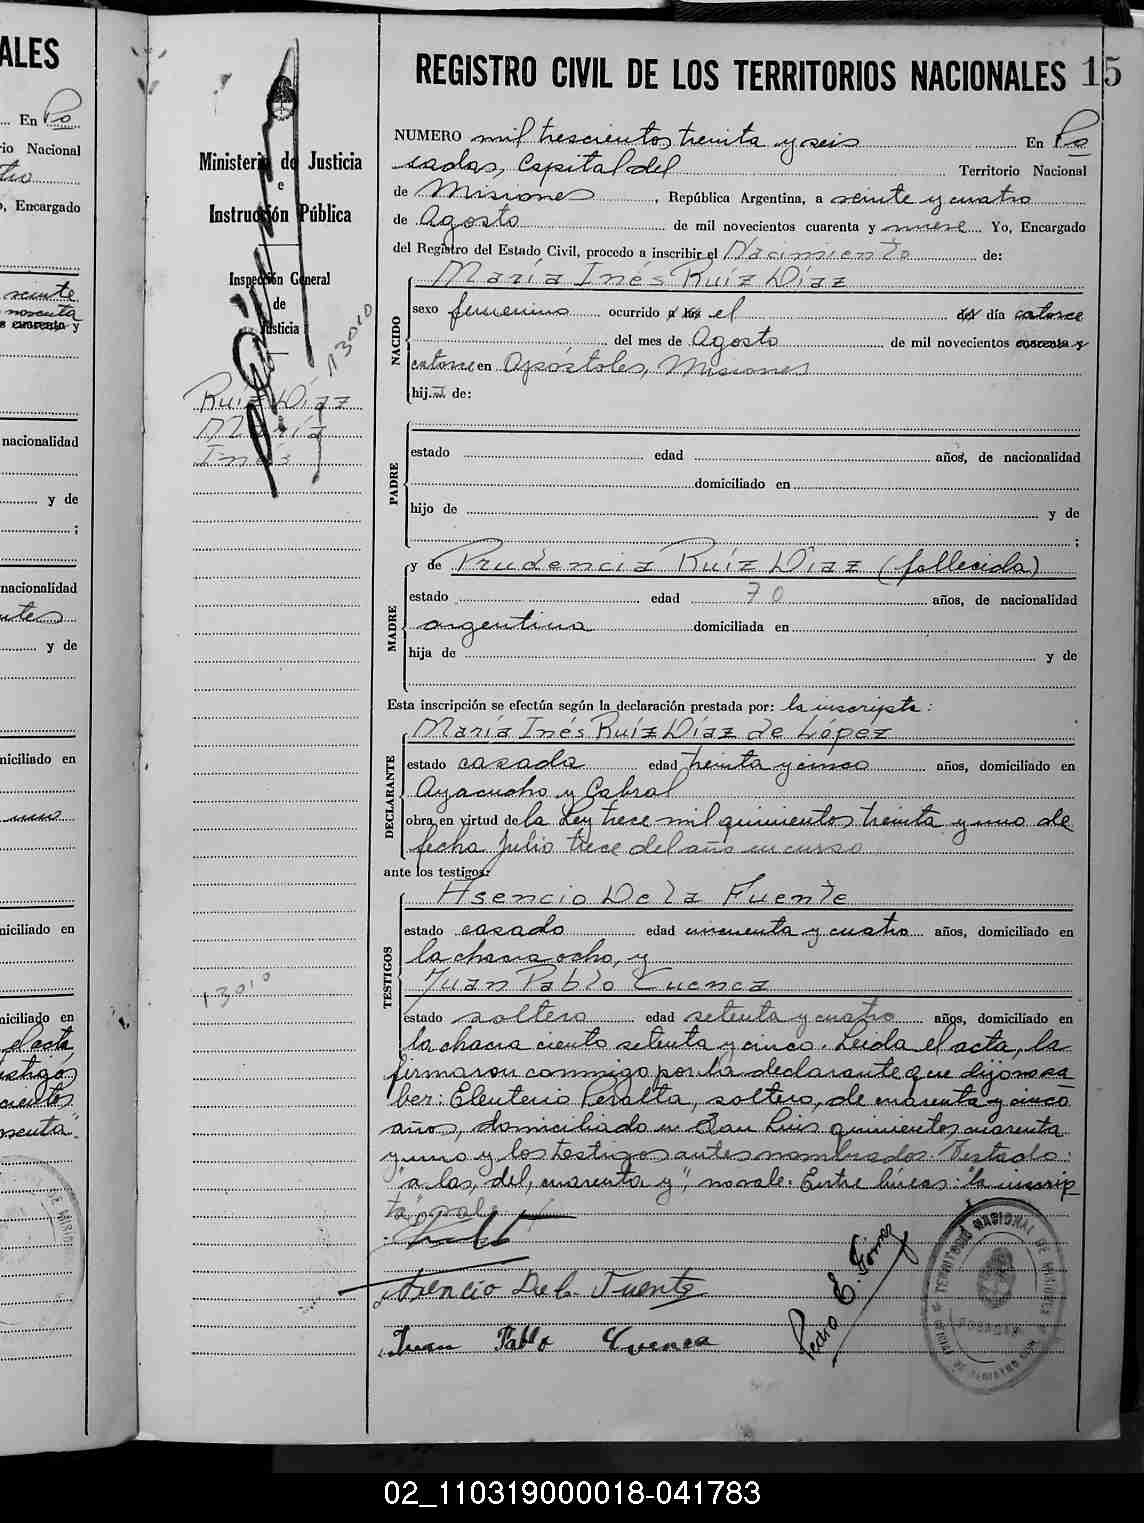 ALES
En Po
rio Nacional
, Encargado
nacionalidad
y de
;
nacionalidad
y de
niciliado en
niciliado en
niciliado en
el acta
Ministerio de Justicia
e
Instrucción Pública
Inspección General
de
Justicia
13010
Ruiz Díaz
María
Inés
13010
REGISTRO CIVIL DE LOS TERRITORIOS NACIONALES 15
NUMERO mil trescientos treinta y seis En Po
sadas, Capital del Territorio Nacional
de Misiones, República Argentina, a veinte y cuatro
de Agosto de mil novecientos cuarenta y nueve Yo, Encargado
del Registro del Estado Civil, procedo a inscribir el Nacimiento de:
María Inés Ruíz Díaz
NACIDO
sexo femenino ocurrido a las el del día catorce
del mes de Agosto de mil novecientos cuarenta y
catorce en Apóstoles, Misiones
hij... de:
PADRE
estado edad años, de nacionalidad
domiciliado en
hijo de y de
;
MADRE
y de Prudencia Ruíz Díaz (fallecida)
estado edad 70 años, de nacionalidad
argentina domiciliada en
hija de y de
Esta inscripción se efectúa según la declaración prestada por: la inscripta:
DECLARANTE
María Inés Ruíz Díaz de López
estado casada edad treinta y cinco años, domiciliado en
Ayacucho y Cabral
obra en virtud de la Ley trece mil quinientos treinta y uno de
fecha Julio trece del año en curso
ante los testigos:
TESTIGOS
Asencio De la Fuente
estado casado edad cincuenta y cuatro años, domiciliado en
la chacra ocho, y
Juan Pablo Cuenca
estado soltero edad setenta y cuatro años, domiciliado en
la chacra ciento setenta y cinco. Leída el acta, la
firmaron conmigo por la declarante que dijo no sa
ber: Eleuterio Peralta, soltero, de cuarenta y cinco
años, domiciliado en San Luis quinientos cuarenta
y uno y los testigos antes nombrados. Testado:
"a las, del, cuarenta y", no vale. Entre líneas: "la inscrip
ta", vale.
Asencio De la Fuente
Juan Pablo Cuenca
Pedro E. Gómez
TERRITORIO NACIONAL DE MISIONES
POSADAS
02_110319000018-041783